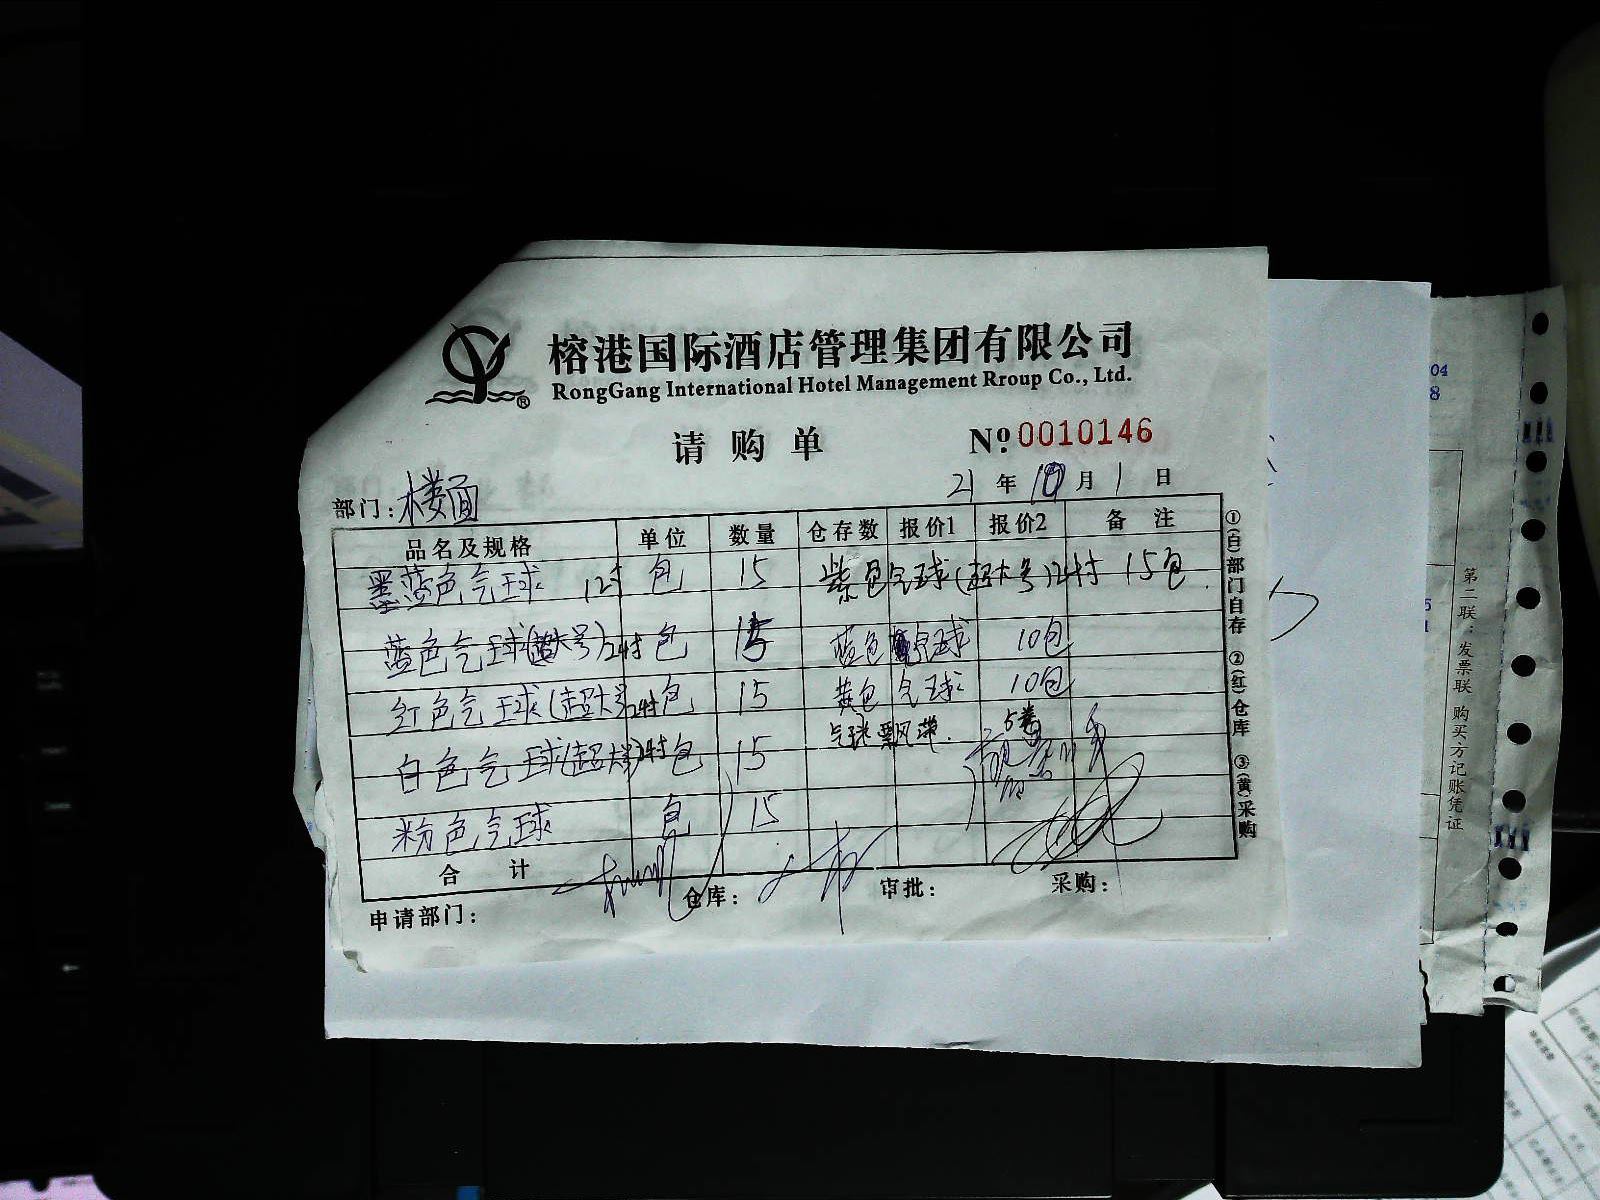 榕港国际酒店管理集团有限公司
RongGang International Hotel Management Rroup Co., Ltd.
®
请购单 Nº:0010146
部门:楼面 21年10月1日
品名及规格 单位 数量 仓存数 报价1 报价2 备注
墨蓝色气球 12寸 包 15 紫色气球(超大号)24寸 15包
蓝色气球(超大号)24寸 包 15 蓝色气球 10包
红色气球(超大号)24寸 包 15 黄色气球 10包
白色气球(超大号)24寸 包 15 气球飘带
粉色气球 包 15
合计
申请部门: 仓库: 审批: 采购:
①(白)部门自存 ②(红)仓库 ③(黄)采购
第二联:发票联 购买方记账凭证
04
8